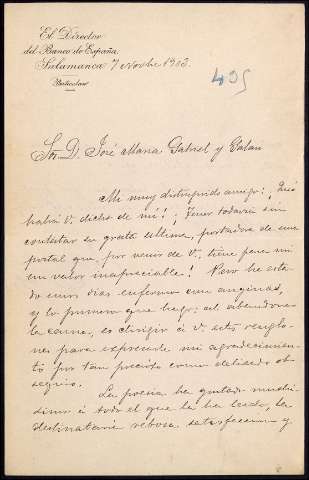 El Director
del Banco de España
Salamanca 7 Novbre 1903.
Particular
405
Sr. D. José Maria Gabriel y Galan
Mi muy distinguido amigo: ¡Qué
habrá V. dicho de mi! ¡Tener todavia sin
contestar su grata ultima, portadora de una
postal que, por venir de V., tiene para mi
un valor inapreciable! Pero he esta
do unos dias enfermo con anginas,
y lo primero que hago, al abandonar
la cama, es dirigir á V. estos renglo
nes para expresarle mi agradecimien
tó por tan precioso como delicado ob
sequio.
La poesia ha gustado muchi
simo á todo el que la ha leido, la
destinataria rebosa satisfaccion y